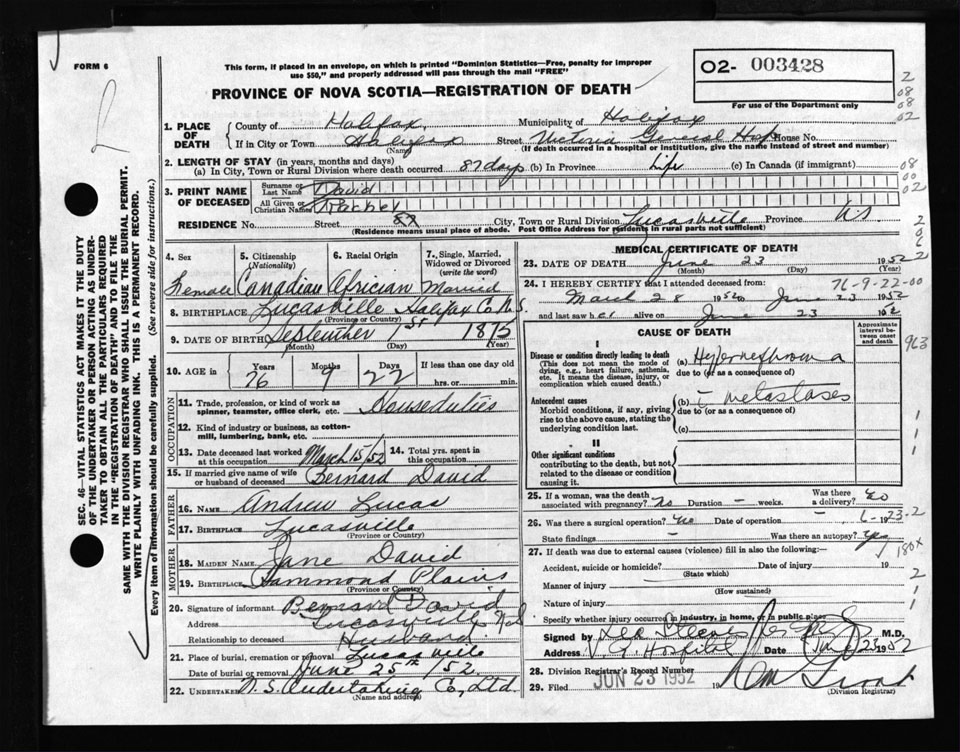 FORM 6
L
This form, if placed in an envelope, on which is printed "Dominion Statistics—Free, penalty for improper
use $50," and properly addressed will pass through the mail "FREE"
02- 003428
For use of the Department only
PROVINCE OF NOVA SCOTIA—REGISTRATION OF DEATH
2
08
08
02
1. PLACE OF DEATH { County of Halifax. Municipality of Halifax
If in City or Town Halifax Street Victoria General Hosp House No.
(Name) (If death occurred in a hospital or institution, give the name instead of street and number)
2. LENGTH OF STAY (in years, months and days)
(a) In City, Town or Rural Division where death occurred 87 days (b) In Province Life (c) In Canada (if immigrant)
08
00
02
3. PRINT NAME OF DECEASED { Surname or Last Name David
All Given or Christian Names Rachel
RESIDENCE No. Street City, Town or Rural Division Lucasville Province N.S.
(Residence means usual place of abode. Post Office Address for residents in rural parts not sufficient)
4. Sex Female
5. Citizenship (Nationality) Canadian
6. Racial Origin Africian
7. Single, Married, Widowed or Divorced (write the word) Married
8. BIRTHPLACE Lucasville Halifax Co N.S.
(Province or Country)
9. DATE OF BIRTH September 1st 1875
(Month) (Day) (Year)
10. AGE in { Years 76 Months 9 Days 22 If less than one day
hrs. or min.
OCCUPATION
11. Trade, profession, or kind of work as spinner, teamster, office clerk, etc. Houseduties
12. Kind of industry or business, as cotton-mill, lumbering, bank, etc.
13. Date deceased last worked at this occupation March 15/52 14. Total yrs. spent in this occupation
15. If married give name of wife or husband of deceased Bernard David
FATHER
16. NAME Andrew Lucas
17. BIRTHPLACE Lucasville
(Province or Country)
MOTHER
18. MAIDEN NAME Jane David
19. BIRTHPLACE Hammond Plains
(Province or Country)
20. Signature of informant Bernard David
Address Lucasville N.S
Relationship to deceased Husband
21. Place of burial, cremation or removal Lucasville
Date of burial or removal June 25th /52
22. UNDERTAKER N.S. Undertaking Co, Ltd.
(Name and address)
MEDICAL CERTIFICATE OF DEATH
23. DATE OF DEATH June 23 1952
(Month) (Day) (Year)
24. I HEREBY CERTIFY that I attended deceased from: 76-9-22-00
March 28 1952 to June 23 1952
and last saw her alive on June 23 1952
CAUSE OF DEATH
Approximate interval between onset and death
963
I
Disease or condition directly leading to death
(This does not mean the mode of dying, e.g., heart failure, asthenia, etc. It means the disease, injury, or complication which caused death.)
(a) Hypernephroma
due to (or as a consequence of)
Antecedent causes
Morbid conditions, if any, giving rise to the above cause, stating the underlying condition last.
(b) c̄ metastases
due to (or as a consequence of)
(c)
II
Other significant conditions
contributing to the death, but not related to the disease or condition causing it.
25. If a woman, was the death associated with pregnancy? No Duration – weeks. Was there a delivery? No
26. Was there a surgical operation? No Date of operation – 6-1923-2
State findings – Was there an autopsy? Yes
180X
27. If death was due to external causes (violence) fill in also the following:—
Accident, suicide or homicide? Date of injury 19
(State which)
Manner of injury
(How sustained)
Nature of injury
Specify whether injury occurred in industry, in home, or in public place
Signed by M.D.
Address V. G. Hospital Date June 23 1952
28. Division Registrar's Record Number
29. Filed JUN 23 1952 19
(Division Registrar)
SEC. 46—VITAL STATISTICS ACT MAKES IT THE DUTY
OF THE UNDERTAKER OR PERSON ACTING AS UNDER-
TAKER TO OBTAIN ALL THE PARTICULARS REQUIRED
IN THE "REGISTRATION OF DEATH" AND TO FILE THE
SAME WITH THE DIVISION REGISTRAR WHO SHALL ISSUE THE BURIAL PERMIT.
WRITE PLAINLY WITH UNFADING INK. THIS IS A PERMANENT RECORD.
Every item of information should be carefully supplied. (See reverse side for instructions.)